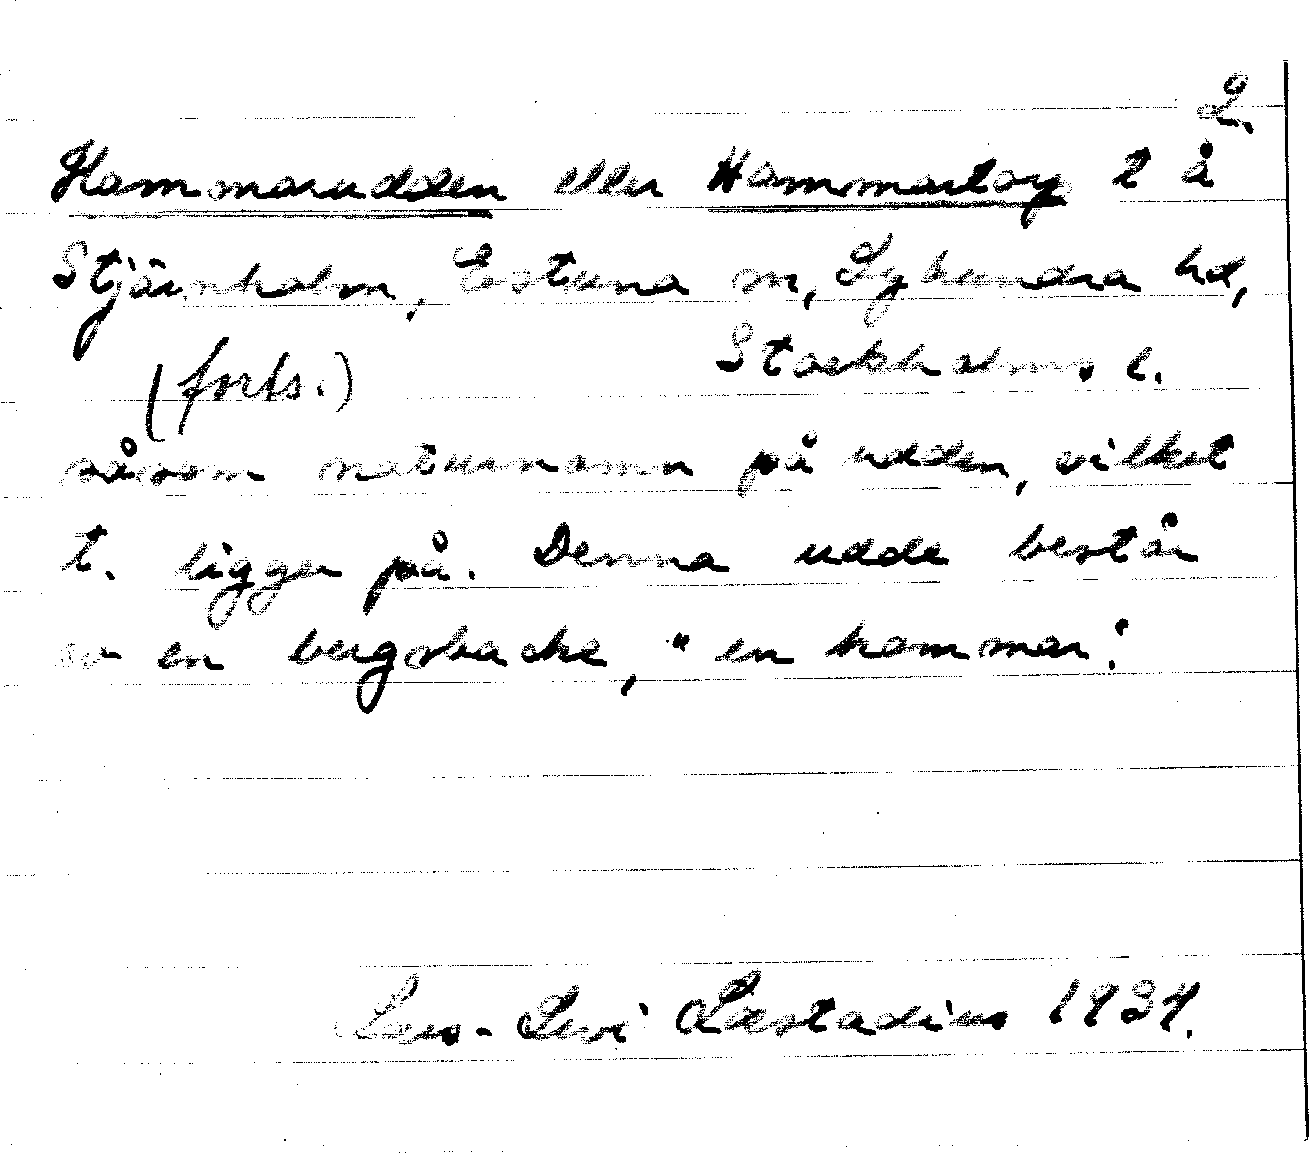 2.
Hammarudden eller Hammartorp t å
Stjärnholm, Estuna sn, Lyhundra hd,
(forts.) Stockholms l.
såsom naturnamn på udden, vilket
t. ligger på. Denna udde består
av en bergsbacke, "en hammar".
Lars-Levi Læstadius 1934.